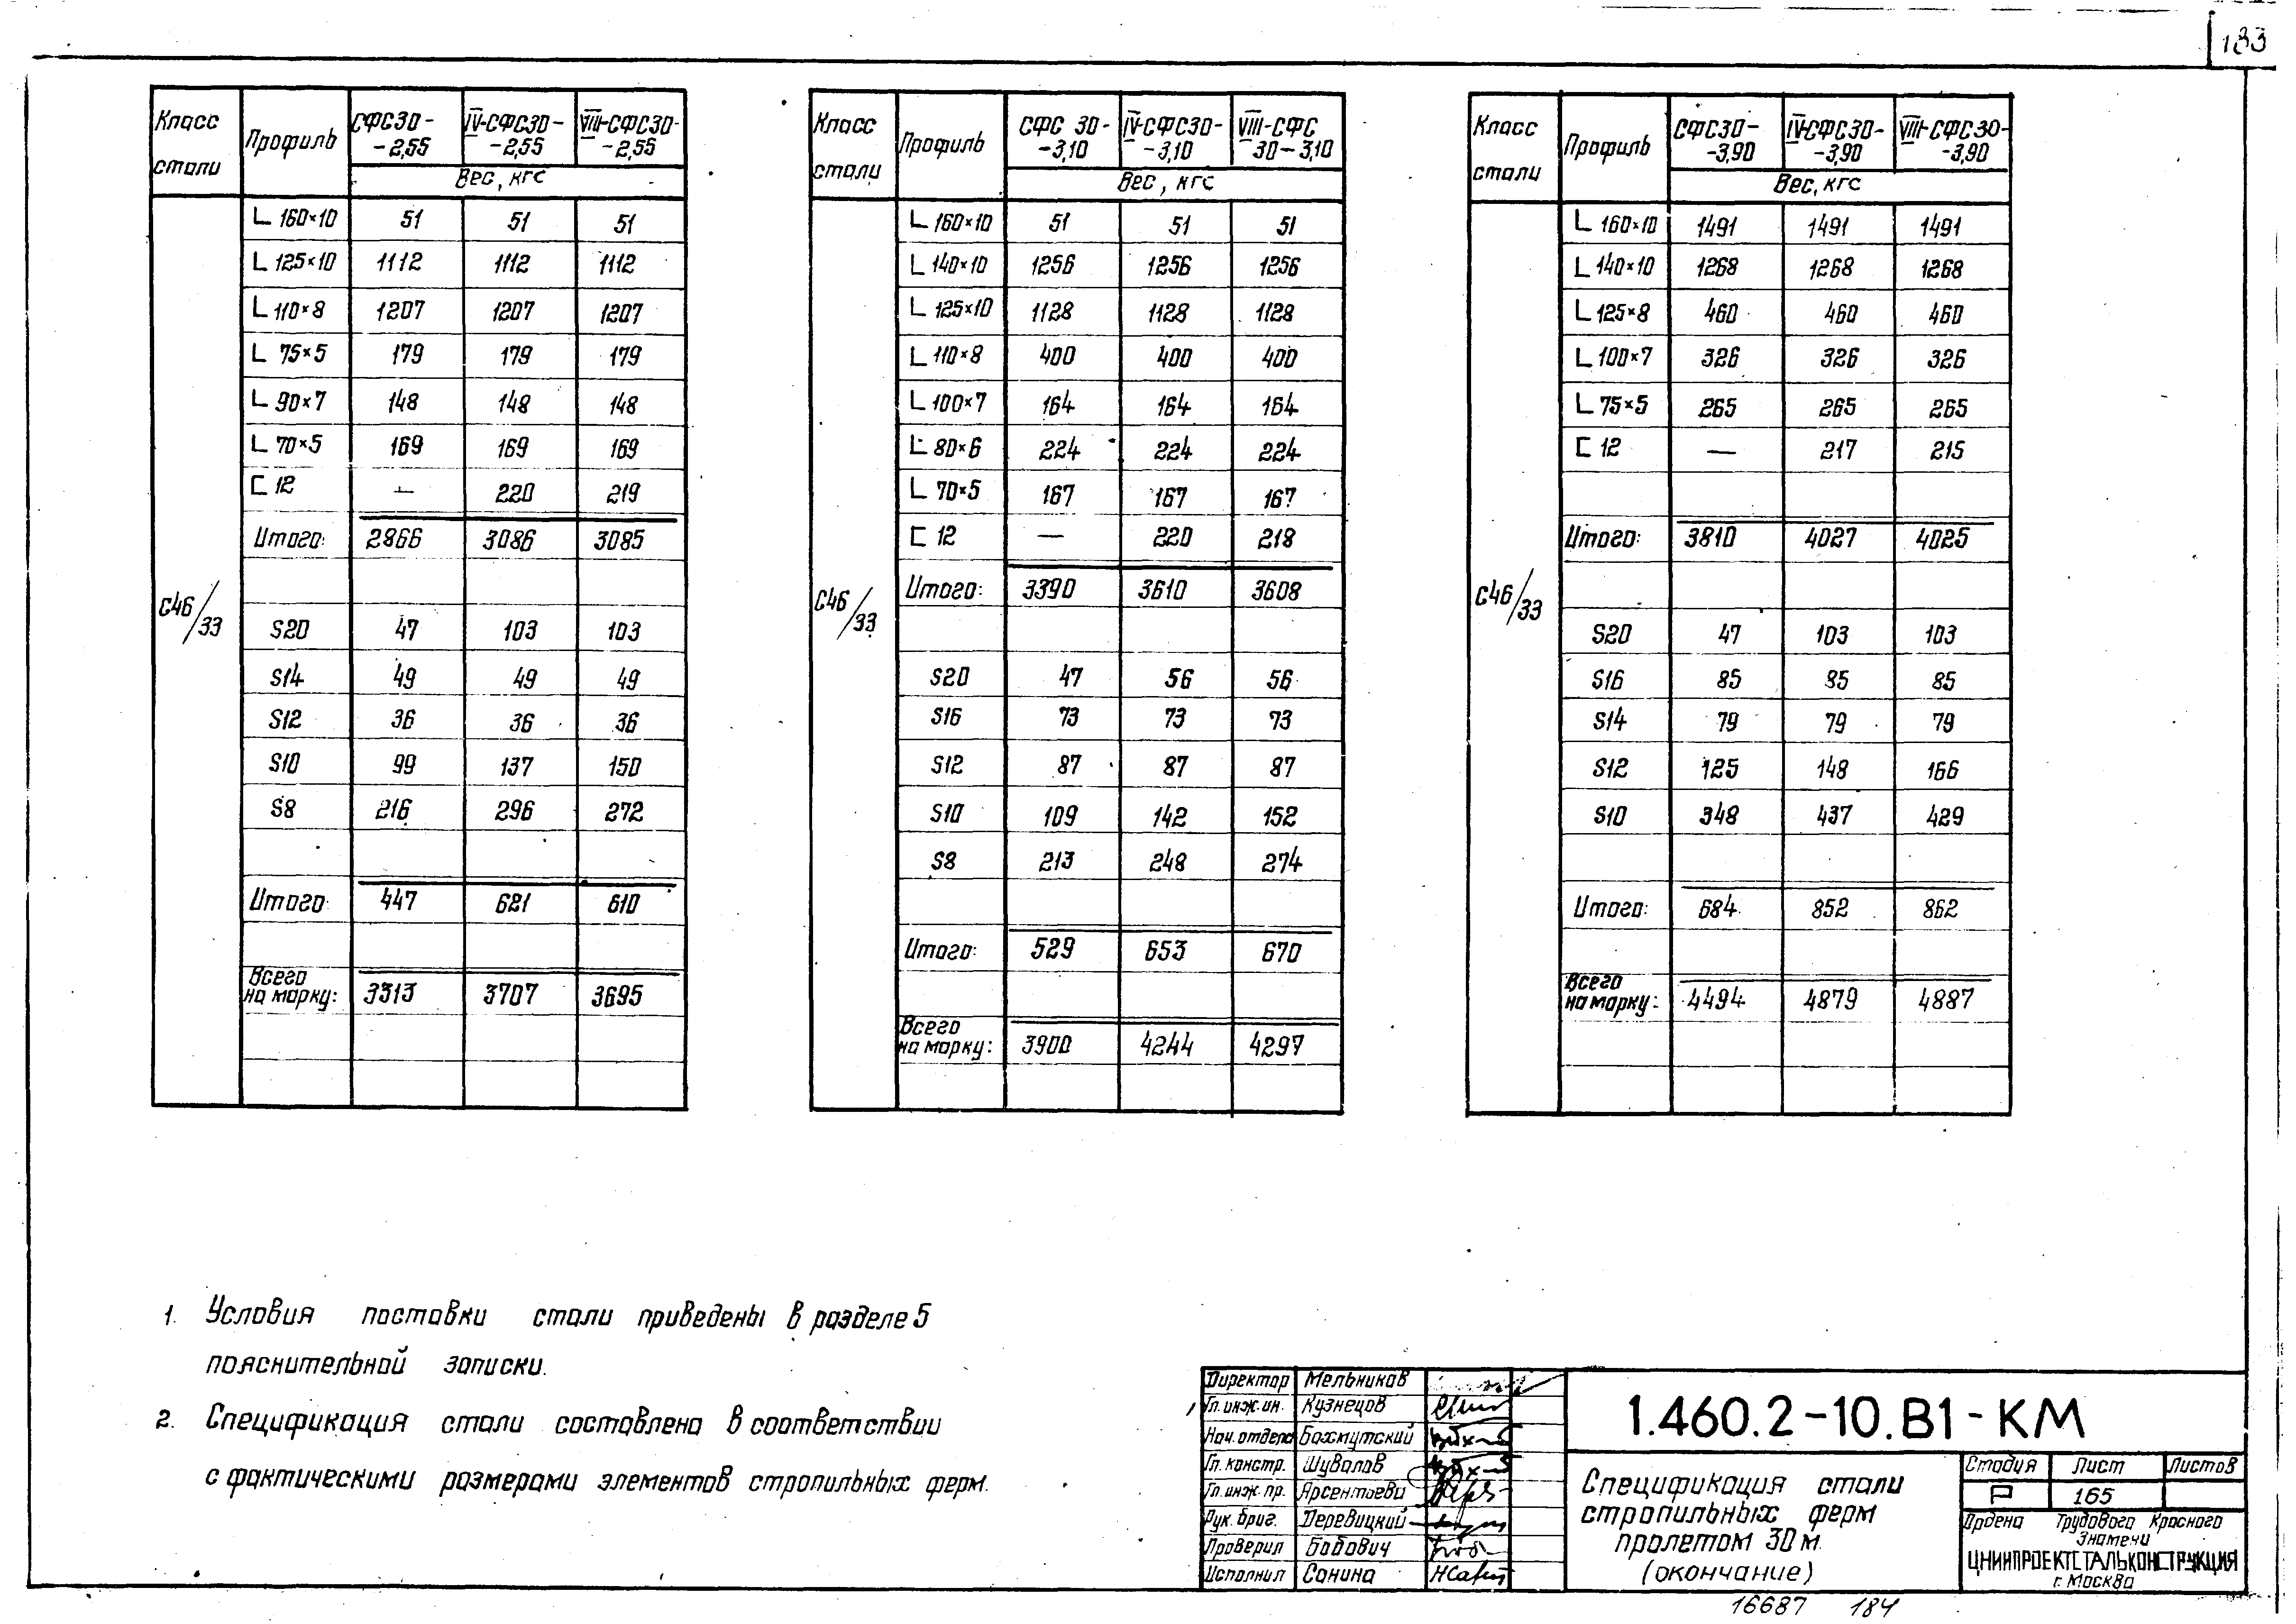 183
Класс стали | Профиль | СФС30--2,55 | IV-СФС30--2,55 | VIII-СФС30--2,55
Вес, кгс
L 160×10 51 51 51
L 125×10 1112 1112 1112
L 110×8 1207 1207 1207
L 75×5 179 179 179
L 90×7 148 148 148
L 70×5 169 169 169
[ 12 — 220 219
Итого: 2866 3086 3085
С46/33
S20 47 103 103
S14 49 49 49
S12 36 36 36
S10 99 137 150
S8 216 296 272
Итого: 447 621 610
Всего
на марку: 3313 3707 3695
Класс стали | Профиль | СФС 30--3,10 | IV-СФС30--3,10 | VIII-СФС 30-3,10
Вес, кгс
L 160×10 51 51 51
L 140×10 1256 1256 1256
L 125×10 1128 1128 1128
L 110×8 400 400 400
L 100×7 164 164 164
L 80×6 224 224 224
L 70×5 167 167 167
[ 12 — 220 218
Итого: 3390 3610 3608
С46/33
S20 47 56 56
S16 73 73 73
S12 87 87 87
S10 109 142 152
S8 213 248 274
Итого: 529 653 670
Всего
на марку: 3900 4244 4297
Класс стали | Профиль | СФС30--3,90 | IV-СФС30--3,90 | VIII-СФС30--3,90
Вес, кгс
L 160×10 1491 1491 1491
L 140×10 1268 1268 1268
L 125×8 460 460 460
L 100×7 326 326 326
L 75×5 265 265 265
[ 12 — 217 215
Итого: 3810 4027 4025
С46/33
S20 47 103 103
S16 85 85 85
S14 79 79 79
S12 125 148 166
S10 348 437 429
Итого: 684 852 862
Всего
на марку: 4494 4879 4887
1. Условия поставки стали приведены в разделе 5
пояснительной записки.
2. Спецификация стали составлена в соответствии
с фактическими размерами элементов стропильных ферм.
Директор Мельников
Гл. инж. ин. Кузнецов
Нач. отдела Бахмутский
Гл. констр. Шувалов
Гл. инж. пр. Арсентьева
Рук. бриг. Деревицкий
Проверил Бабович
Исполнил Санина
1.460.2-10.В1-КМ
Спецификация стали
стропильных ферм
пролетом 30 м.
(окончание)
Стадия Лист Листов
Р 165
Ордена Трудового Красного
Знамени
ЦНИИПРОЕКТСТАЛЬКОНСТРУКЦИЯ
г. Москва
16687 184